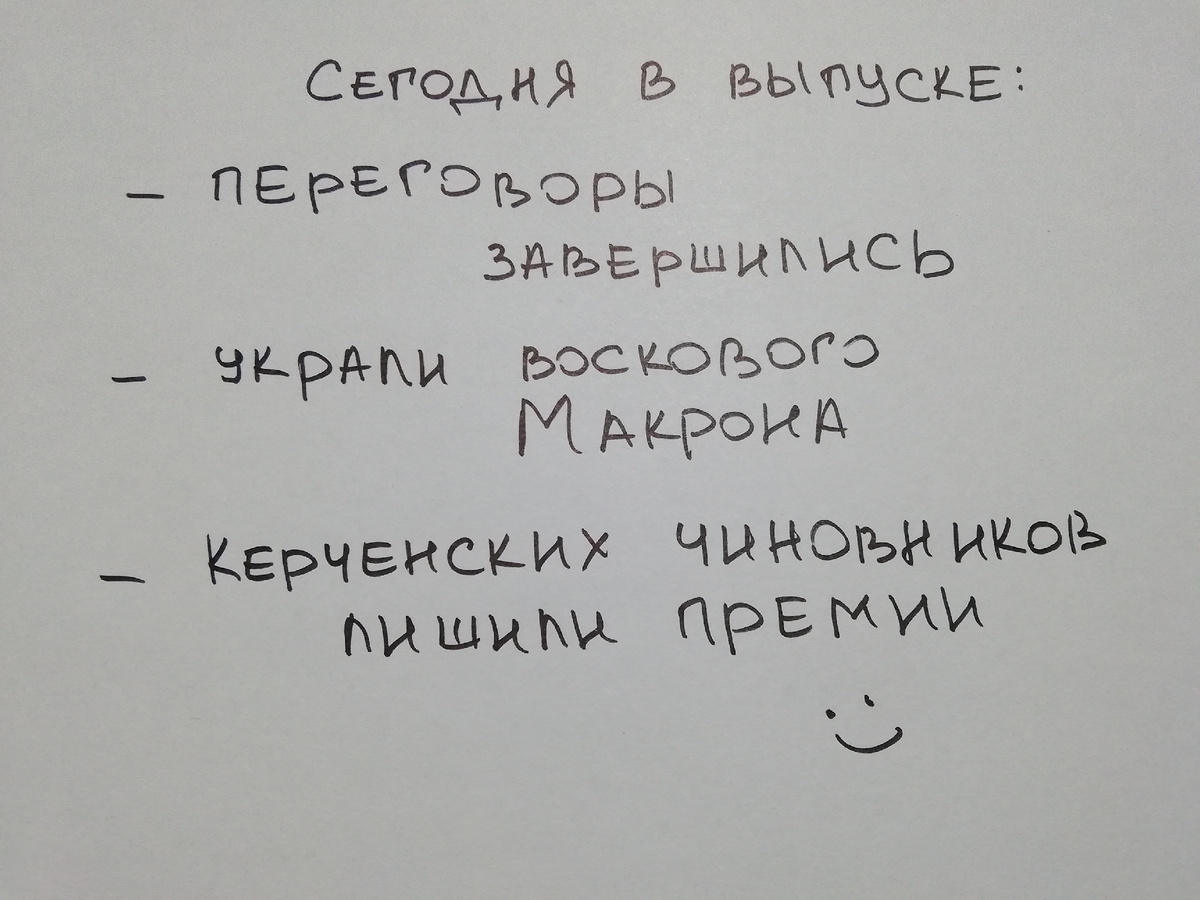 Сегодня в выпуске:
- переговоры
завершились
- украли воскового
Макрона
- керченских чиновников
лишили премии